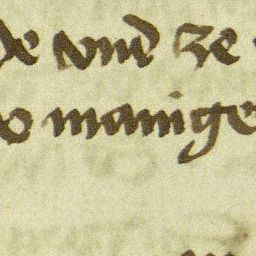 de vnd ze
o manige